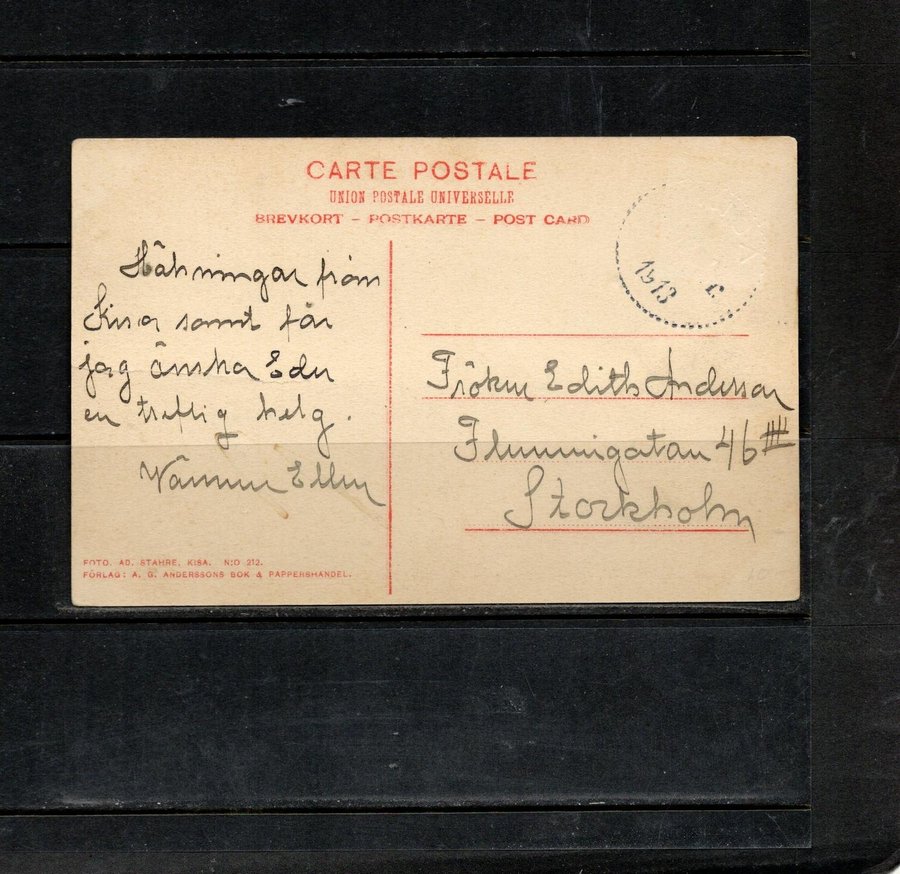 CARTE POSTALE
UNION POSTALE UNIVERSELLE
BREVKORT - POSTKARTE - POST CARD
1913
C.
Hälsningar från
Kisa samt får
jag önska Eder
en treflig helg.
Vännen Ellen
Fröken Edith Andersson
Flemminggatan 46 IIII
Stockholm
FOTO. AD. STAHRE, KISA. N:O 212.
FÖRLAG: A. G. ANDERSSONS BOK & PAPPERSHANDEL.